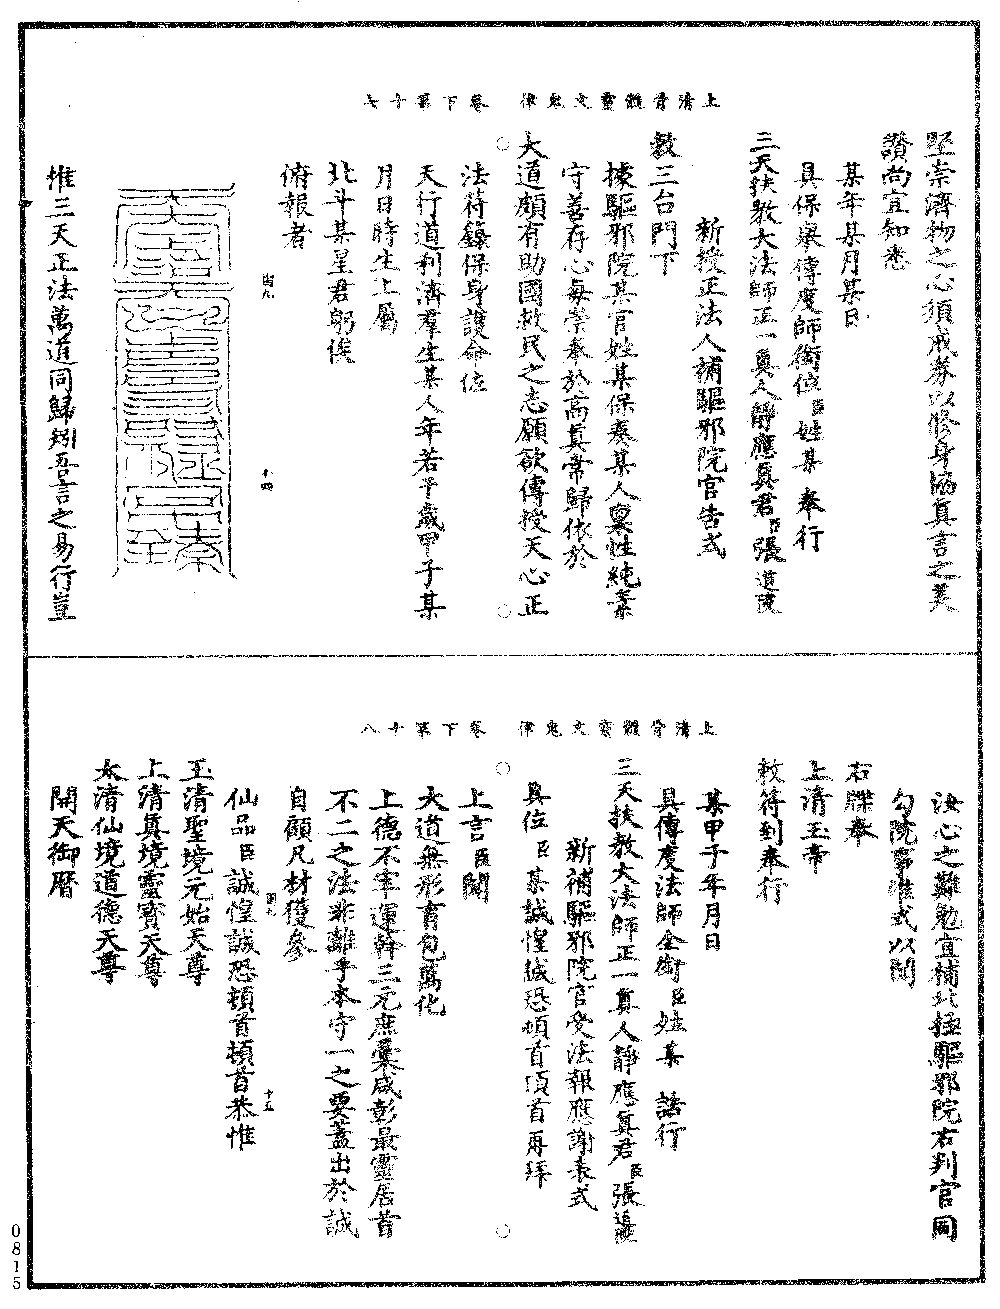 上清骨髓靈文鬼律　卷下第十七
堅崇濟物之心須戒券以修身協真言之美
讚尚宜知悉
某年某月某日
具保舉傳度師銜位臣姓某　奉行
三天扶教大法師正一真人靜應真君臣張道陵
新授正法人補驅邪院官告式
敕三台門下
據驅邪院某官姓某保奏某人稟性純素
守善存心每崇奉於高真常歸依於
大道頗有助國救民之志願欲傳授天心正
法符籙保身護命位
天行道利濟羣生某人年若干歲甲子某
月日時生上屬
北斗某星君躬俟
俯報者
國九
十四
惟三天正法萬道同歸矧吾言之易行豈
上清骨髓靈文鬼律　卷下第十八
決心之難勉宜補北極驅邪院右判官同
勾院事准式以聞
右牒奉
上清玉帝
敕符到奉行
某甲子年月日
具傳度法師全銜臣姓某　諮行
三天扶教大法師正一真人靜應真君臣張道陵
新補驅邪院官受法報應謝表式
具位臣某誠惶誠恐頓首頓首再拜
上言臣聞
大道無形育包萬化
上德不宰運幹三元庶彙咸彰最靈居首
不二之法非離乎本守一之要蓋出於誠
自顧凡材獲參
仙品臣誠惶誠恐頓首頓首恭惟
國九
十五
玉清聖境元始天尊
上清真境靈寶天尊
太清仙境道德天尊
開天御曆
0815